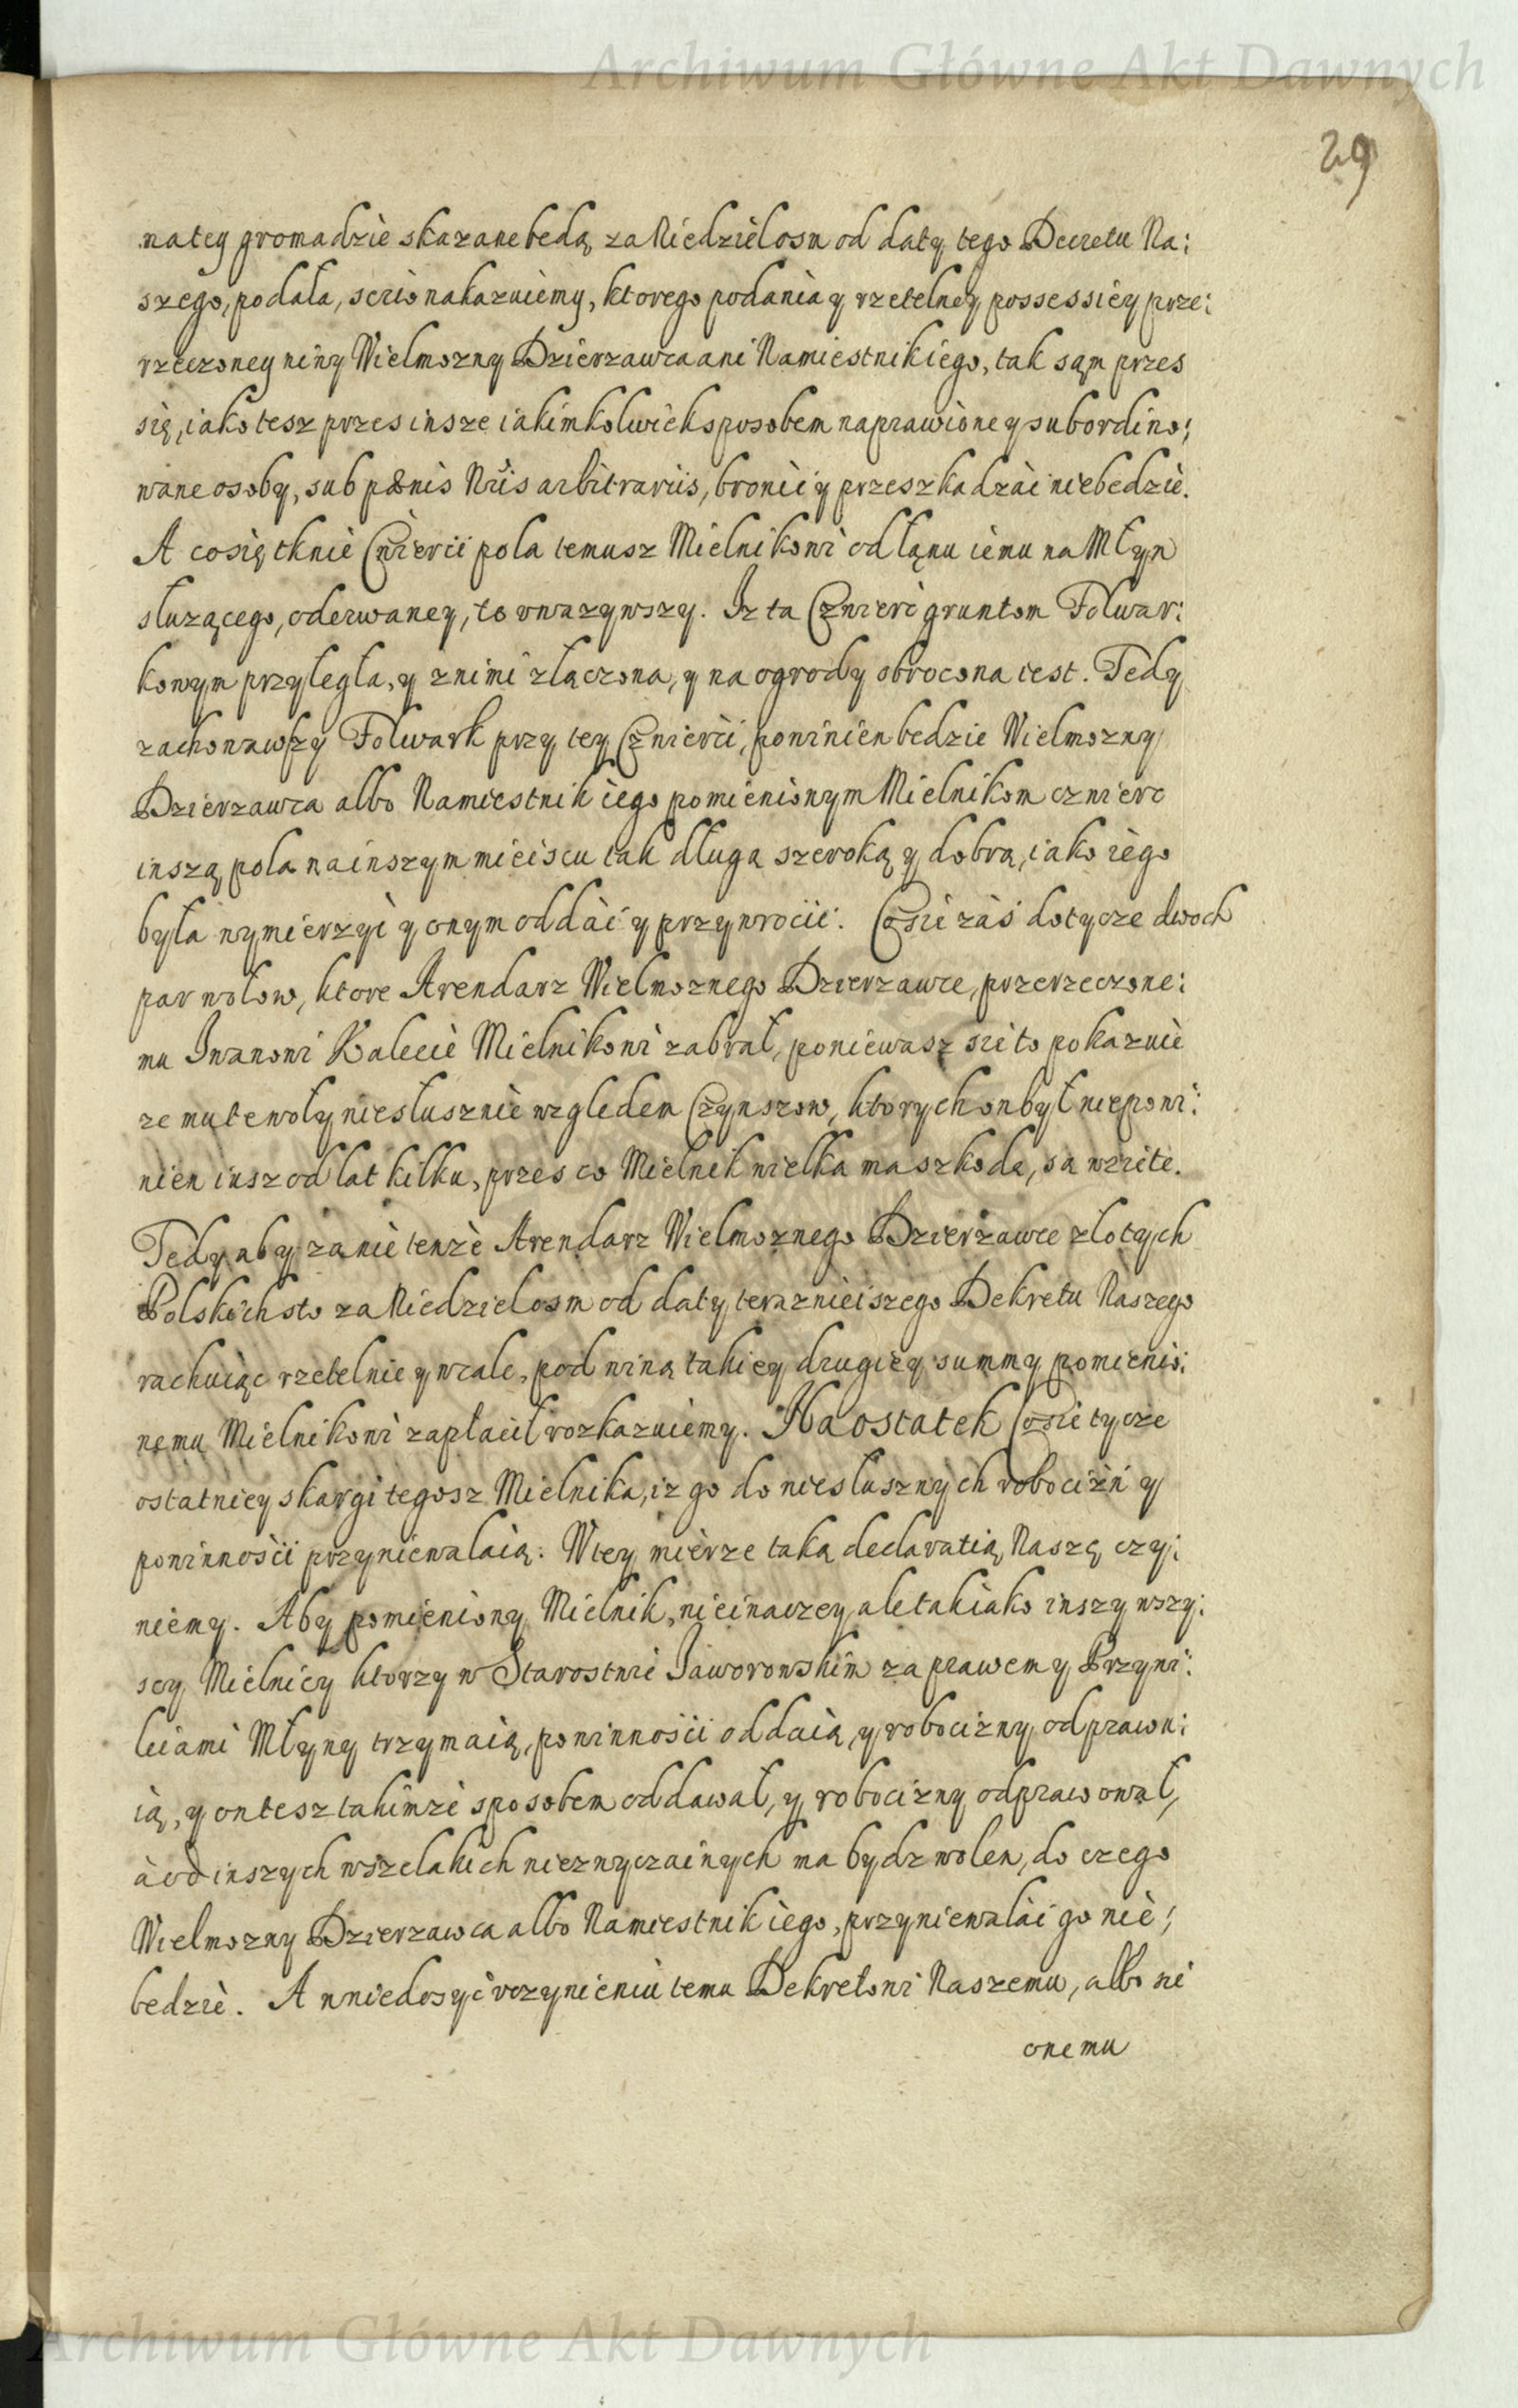 Archiwum Główne Akt Dawnych
29
na tey gromadzie skazane bedą za Niedziel osm od daty tego Decretu Na:
szego, podała, serio nakazuiemy, ktorego podania y rzetelney possessiey prze:
rzeczoney niwy Wielmozny Dzierzawca ani Namiestnik iego, tak sąm przes
się, iako tesz przes insze iakimkolwiek sposobem naprawione y subordino:
wane osoby, sub pænis Nris arbitrariis, bronić y przeszkadzać niebedzie.
A co się tknie Cżwierci pola temusz Mielnikowi od łąnu iemu na Młyn
służącego, oderwaney, to vwazywszy. Iz ta Czwierć gruntom Folwar:
kowym przyległa, y z nimi złączona, y na ogrody obrocona iest. Tedy
zachowawszy Folwark przy tey Czwierci, powinien bedzie Wielmozny
Dzierzawca albo Namiestnik iego pomienionym Mielnikom czwierc
inszą pola na inszym mieiscu tak długą szeroką y dobrą, iako iego
była wymierzyć y onym oddać y przywrocić. Co sie zaś dotycze dwoch
par wołow, ktore Arendarz Wielmoznego Dzierzawce, przerzeczone:
mu Iwanowi Kalecie Mielnikowi zabrał, poniewasz sie to pokazuie
ze mu te woły niesłusznie wzgledem Czynszow, ktorych on był niepowi:
nien iusz od lat kilku, przes co Mielnik wielka ma szkodą, sa wziete.
Tedy aby za nie tenże Arendarz Wielmoznego Dzierzawce złotych
Polskich sto za Niedziel osm od daty terazniejszego Dekretu Naszego
rachuiąc rzetelnie y wcale, pod winą takiey drugiey summy pomienio:
nemu Mielnikowi zapłacił rozkazuiemy. Na ostatek Co sie tycze
ostatniey skargi tegosz Mielnika, iz go do niesłusznych robocizń y
powinnoscii przyniewalaią. W tey mierze taką declaratią Naszę czy:
niemy. Aby pomieniony Mielnik, nieinaczey, ale tak iako inszy wszy:
scy Mielnicy ktorzy w Starostwie Iaworowskim za prawem y Przywi:
leiami Młyny trzymaią, powinnoscii oddaią, y robocizny odprawu:
ią, y on tesz takimze sposobem oddawał, y robocizny odprawował,
à od inszych wszelakich niezwyczainych ma bydz wolen, do czego
Wielmozny Dzierzawca albo Namiestnik iego, przyniewalać go nie:
bedzie. A w niedosyć vczynieniu temu Dekretowi Naszemu, albo si
onemu
Archiwum Główne Akt Dawnych